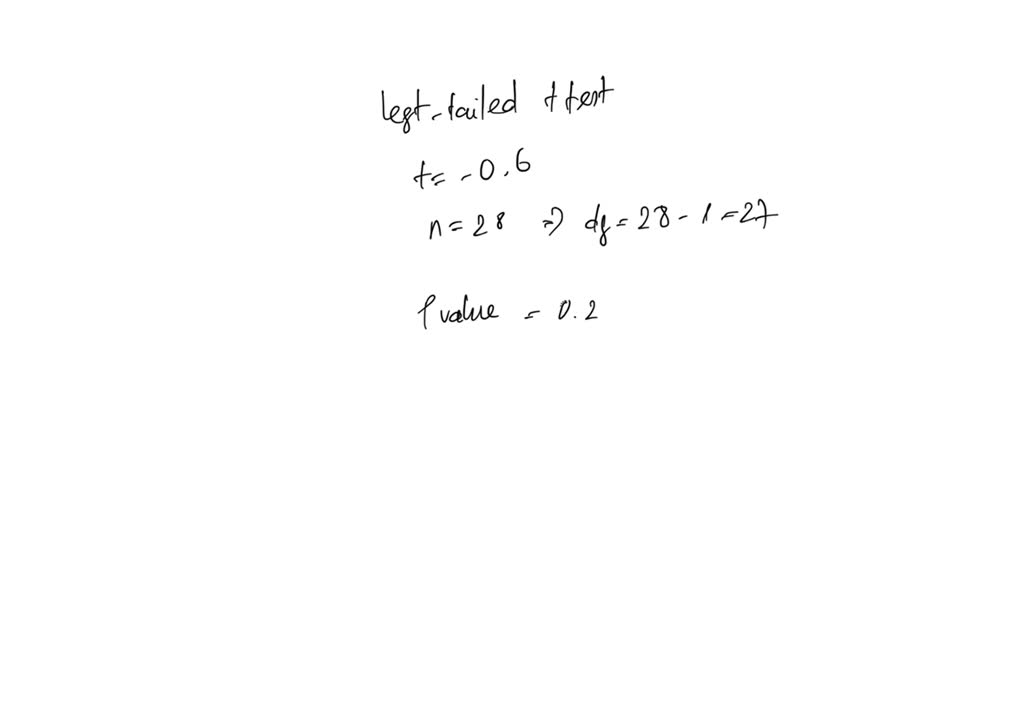 left-tailed t test
t = -0.6
n = 28 => df = 28 - 1 = 27
P value = 0.2